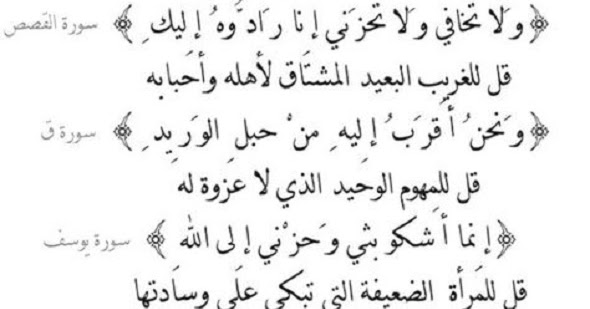 ﴿ وَلَا تَخَافِي وَلَا تَحْزَنِي إِنَّا رَادُّوهُ إِلَيْكِ ﴾ سورة القصص
قل للغريب البعيد المشتاق لأهله وأحبابه
﴿ وَنَحْنُ أَقْرَبُ إِلَيْهِ مِنْ حَبْلِ الْوَرِيدِ ﴾ سورة ق
قل للمهوم الوحيد الذي لا عزوة له
﴿ إنما أشكو بثي وَحزْني إلى الله ﴾ سورة يوسف
قل للمرأة الضعيفة التي تبكي على وسادتها